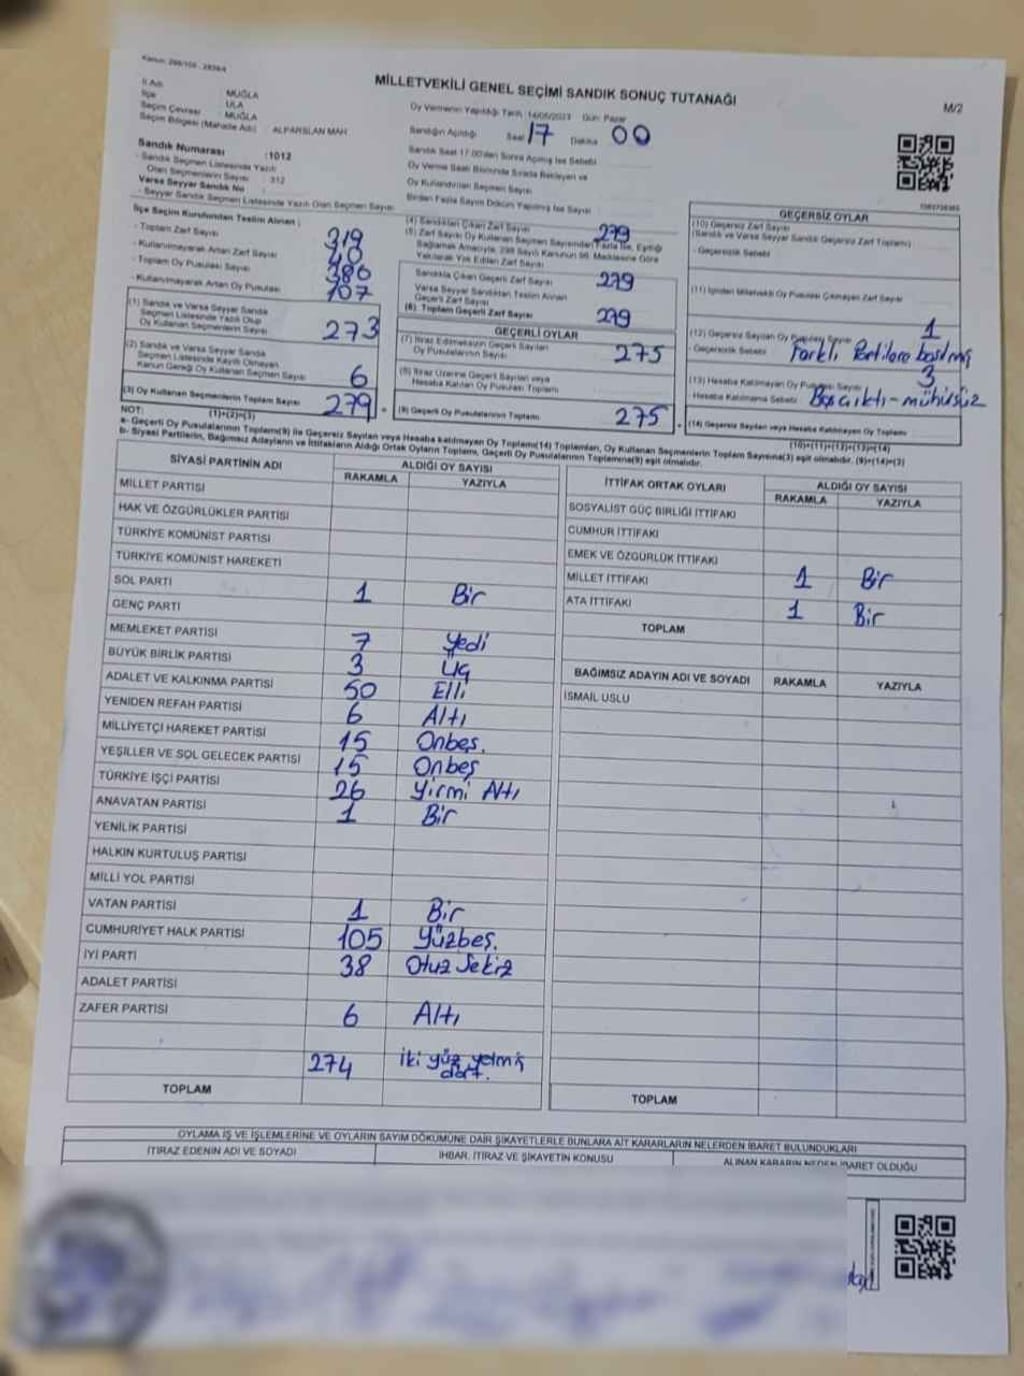 Kanun: 298/105 - 2839/4
MİLLETVEKİLİ GENEL SEÇİMİ SANDIK SONUÇ TUTANAĞI
M/2
İl Adı MUĞLA
İlçe ULA
Seçim Çevresi MUĞLA
Seçim Bölgesi (Mahalle Adı) : ALPARSLAN MAH.
Sandık Numarası :1012
- Sandık Seçmen Listesinde Yazılı
Olan Seçmenlerin Sayısı : 312
Varsa Seyyar Sandık No
- Seyyar Sandık Seçmen Listesinde Yazılı Olan Seçmen Sayısı
Oy Vermenin Yapıldığı Tarih: 14/05/2023 Gün: Pazar
Sandığın Açıldığı Saat 17 Dakika 00
Sandık Saat 17.00'den Sonra Açılmış İse Sebebi
Oy Verme Saati Bitiminde Sırada Bekleyen ve
Oy Kullandırılan Seçmen Sayısı
Birden Fazla Sayım Döküm Yapılmış İse Sayısı
İlçe Seçim Kurulundan Teslim Alınan :
- Toplam Zarf Sayısı 319
- Kullanılmayarak Artan Zarf Sayısı 40
- Toplam Oy Pusulası Sayısı 386
- Kullanılmayarak Artan Oy Pusulası 107
(1) Sandık ve Varsa Seyyar Sandık
Seçmen Listesinde Yazılı Olup
Oy Kullanan Seçmenlerin Sayısı 273
(2) Sandık ve Varsa Seyyar Sandık
Seçmen Listesinde Kayıtlı Olmayan
Kanun Gereği Oy Kullanan Seçmen Sayısı 6
(3) Oy Kullanan Seçmenlerin Toplam Sayısı 279
(1)+(2)=(3)
(4) Sandıktan Çıkan Zarf Sayısı 279
(5) Zarf Sayısı Oy Kullanan Seçmen Sayısından Fazla İse, Eşitliği
Sağlamak Amacıyla, 298 Sayılı Kanunun 98. Maddesine Göre
Yakılarak Yok Edilen Zarf Sayısı
Sandıkta Çıkan Geçerli Zarf Sayısı 279
Varsa Seyyar Sandıktan Teslim Alınan
Geçerli Zarf Sayısı
(6). Toplam Geçerli Zarf Sayısı 279
GEÇERLİ OYLAR
(7) İtiraz Edilmeksizin Geçerli Sayılan
Oy Pusulalarının Sayısı 275
(8) İtiraz Üzerine Geçerli Sayılan veya
Hesaba Katılan Oy Pusulası Toplamı
(9) Geçerli Oy Pusulalarının Toplamı 275
GEÇERSİZ OYLAR
(10) Geçersiz Zarf Sayısı
(Sandık ve Varsa Seyyar Sandık Geçersiz Zarf Toplamı)
- Geçersizlik Sebebi
(11) İçinden Milletvekili Oy Pusulası Çıkmayan Zarf Sayısı
(12) Geçersiz Sayılan Oy Pusulası Sayısı 1
- Geçersizlik Sebebi Farklı Partilere basılmış
(13) Hesaba Katılmayan Oy Pusulası Sayısı 3
Hesaba Katılmama Sebebi Boş çıktı - mühürsüz
(14) Geçersiz Sayılan veya Hesaba Katılmayan Oy Toplamı
(10)+(11)+(12)+(13)=(14)
NOT:
a- Geçerli Oy Pusulalarının Toplamı(9) ile Geçersiz Sayılan veya Hesaba katılmayan Oy Toplamı(14) Toplamları, Oy Kullanan Seçmenlerin Toplam Sayısına(3) eşit olmalıdır. (9)+(14)=(3)
b- Siyasi Partilerin, Bağımsız Adayların ve İttifakların Aldığı Ortak Oyların Toplamı, Geçerli Oy Pusulalarının Toplamına(9) eşit olmalıdır.
SİYASİ PARTİNİN ADI ALDIĞI OY SAYISI
RAKAMLA YAZIYLA
MİLLET PARTİSİ
HAK VE ÖZGÜRLÜKLER PARTİSİ
TÜRKİYE KOMÜNİST PARTİSİ
TÜRKİYE KOMÜNİST HAREKETİ
SOL PARTİ 1 Bir
GENÇ PARTİ
MEMLEKET PARTİSİ 7 Yedi
BÜYÜK BİRLİK PARTİSİ 3 Üç
ADALET VE KALKINMA PARTİSİ 50 Elli
YENİDEN REFAH PARTİSİ 6 Altı
MİLLİYETÇİ HAREKET PARTİSİ 15 Onbeş.
YEŞİLLER VE SOL GELECEK PARTİSİ 15 Onbeş
TÜRKİYE İŞÇİ PARTİSİ 26 Yirmi Altı
ANAVATAN PARTİSİ 1 Bir
YENİLİK PARTİSİ
HALKIN KURTULUŞ PARTİSİ
MİLLİ YOL PARTİSİ
VATAN PARTİSİ 1 Bir
CUMHURİYET HALK PARTİSİ 105 Yüzbeş.
İYİ PARTİ 38 Otuz Sekiz
ADALET PARTİSİ
ZAFER PARTİSİ 6 Altı
274 iki yüz yetmiş
dört.
TOPLAM
İTTİFAK ORTAK OYLARI ALDIĞI OY SAYISI
RAKAMLA YAZIYLA
SOSYALİST GÜÇ BİRLİĞİ İTTİFAKI
CUMHUR İTTİFAKI
EMEK VE ÖZGÜRLÜK İTTİFAKI
MİLLET İTTİFAKI 1 Bir
ATA İTTİFAKI 1 Bir
TOPLAM
BAĞIMSIZ ADAYIN ADI VE SOYADI RAKAMLA YAZIYLA
İSMAİL USLU
TOPLAM
OYLAMA İŞ VE İŞLEMLERİNE VE OYLARIN SAYIM DÖKÜMÜNE DAİR ŞİKAYETLERLE BUNLARA AİT KARARLARIN NELERDEN İBARET BULUNDUKLARI
İTİRAZ EDENİN ADI VE SOYADI İHBAR, İTİRAZ VE ŞİKAYETİN KONUSU ALINAN KARARIN NEDEN İBARET OLDUĞU